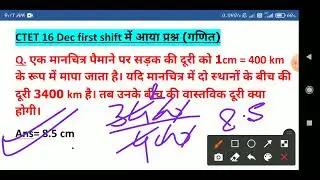 CTET 16 Dec first shift में आया प्रश्न (गणित)
Q. एक मानचित्र पैमाने पर सड़क की दूरी को 1cm = 400 km
के रूप में मापा जाता है। यदि मानचित्र में दो स्थानों के बीच की
दूरी 3400 km है। तब उनके बीच की वास्तविक दूरी क्या
होगी।
Ans= 8.5 cm
8.5